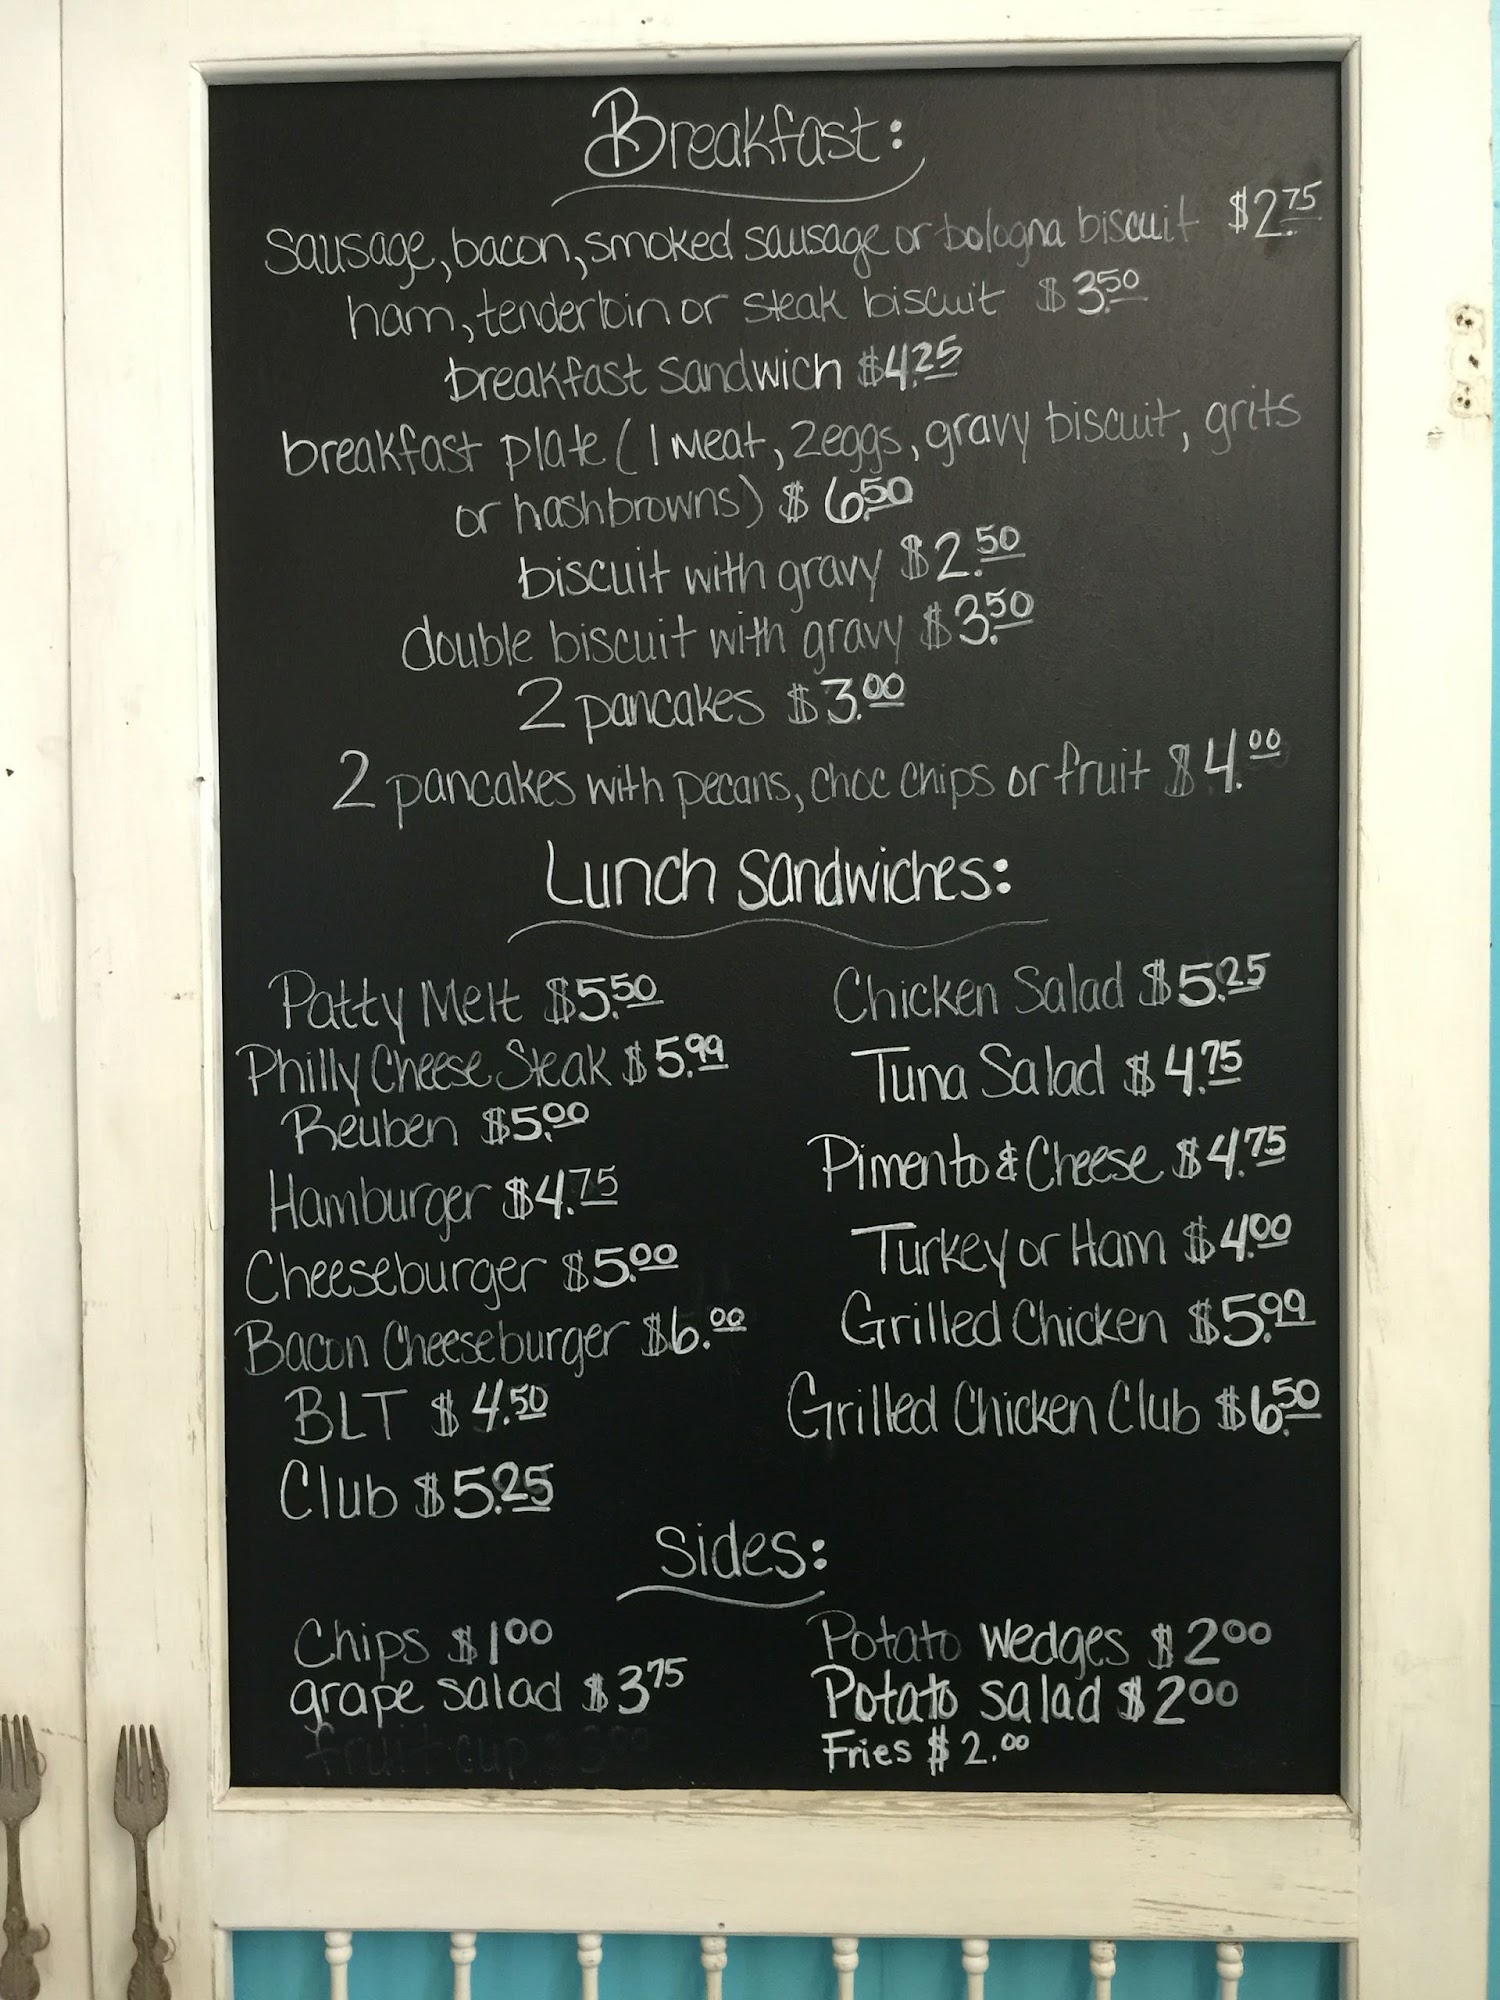 Breakfast:
sausage, bacon, smoked sausage or bologna biscuit $2.75
ham, tenderloin or steak biscuit $3.50
breakfast sandwich $4.25
breakfast plate (1 meat, 2 eggs, gravy biscuit, grits
or hashbrowns) $6.50
biscuit with gravy $2.50
double biscuit with gravy $3.50
2 pancakes $3.00
2 pancakes with pecans, choc chips or fruit $4.00
Lunch Sandwiches:
Patty Melt $5.50
Philly Cheese Steak $5.99
Reuben $5.00
Hamburger $4.75
Cheeseburger $5.00
Bacon Cheeseburger $6.00
BLT $4.50
Club $5.25
Chicken Salad $5.25
Tuna Salad $4.75
Pimento & Cheese $4.75
Turkey or Ham $4.00
Grilled Chicken $5.99
Grilled Chicken Club $6.50
Sides:
Chips $1 00
grape salad $3 75
fruit cup
Potato wedges $2 00
Potato salad $2 00
Fries $2.00